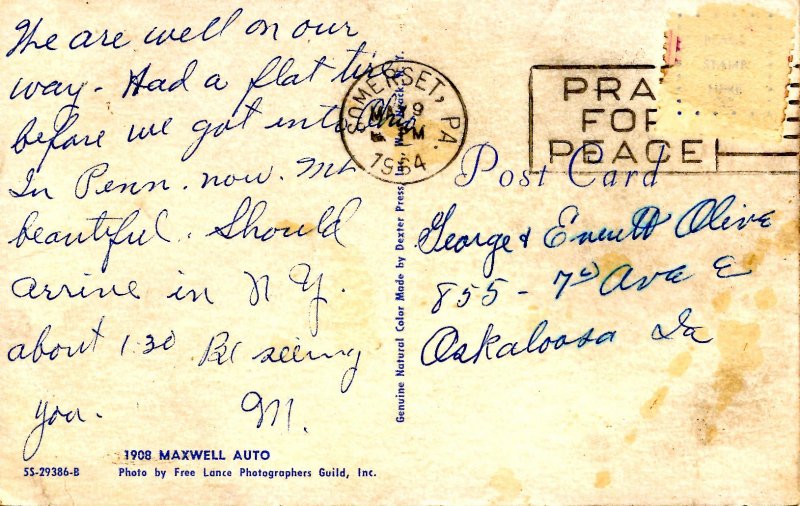 We are well on our
way - Had a flat tire
before we got into Ohio
In Penn. now. Mts
beautiful. Should
arrive in N Y.
about 1:30 Be seeing
you. M.
1908 MAXWELL AUTO
5S-29386-B Photo by Free Lance Photographers Guild, Inc.
Genuine Natural Color Made by Dexter Press, Inc., West Nyack, N. Y.
SOMERSET, PA.
MAY 9
M
1964
PRAY
FOR
PEACE
PLACE
STAMP
HERE
Post Card
George & Emmett Olive
855 - 7th Ave E
Oskaloosa Ia